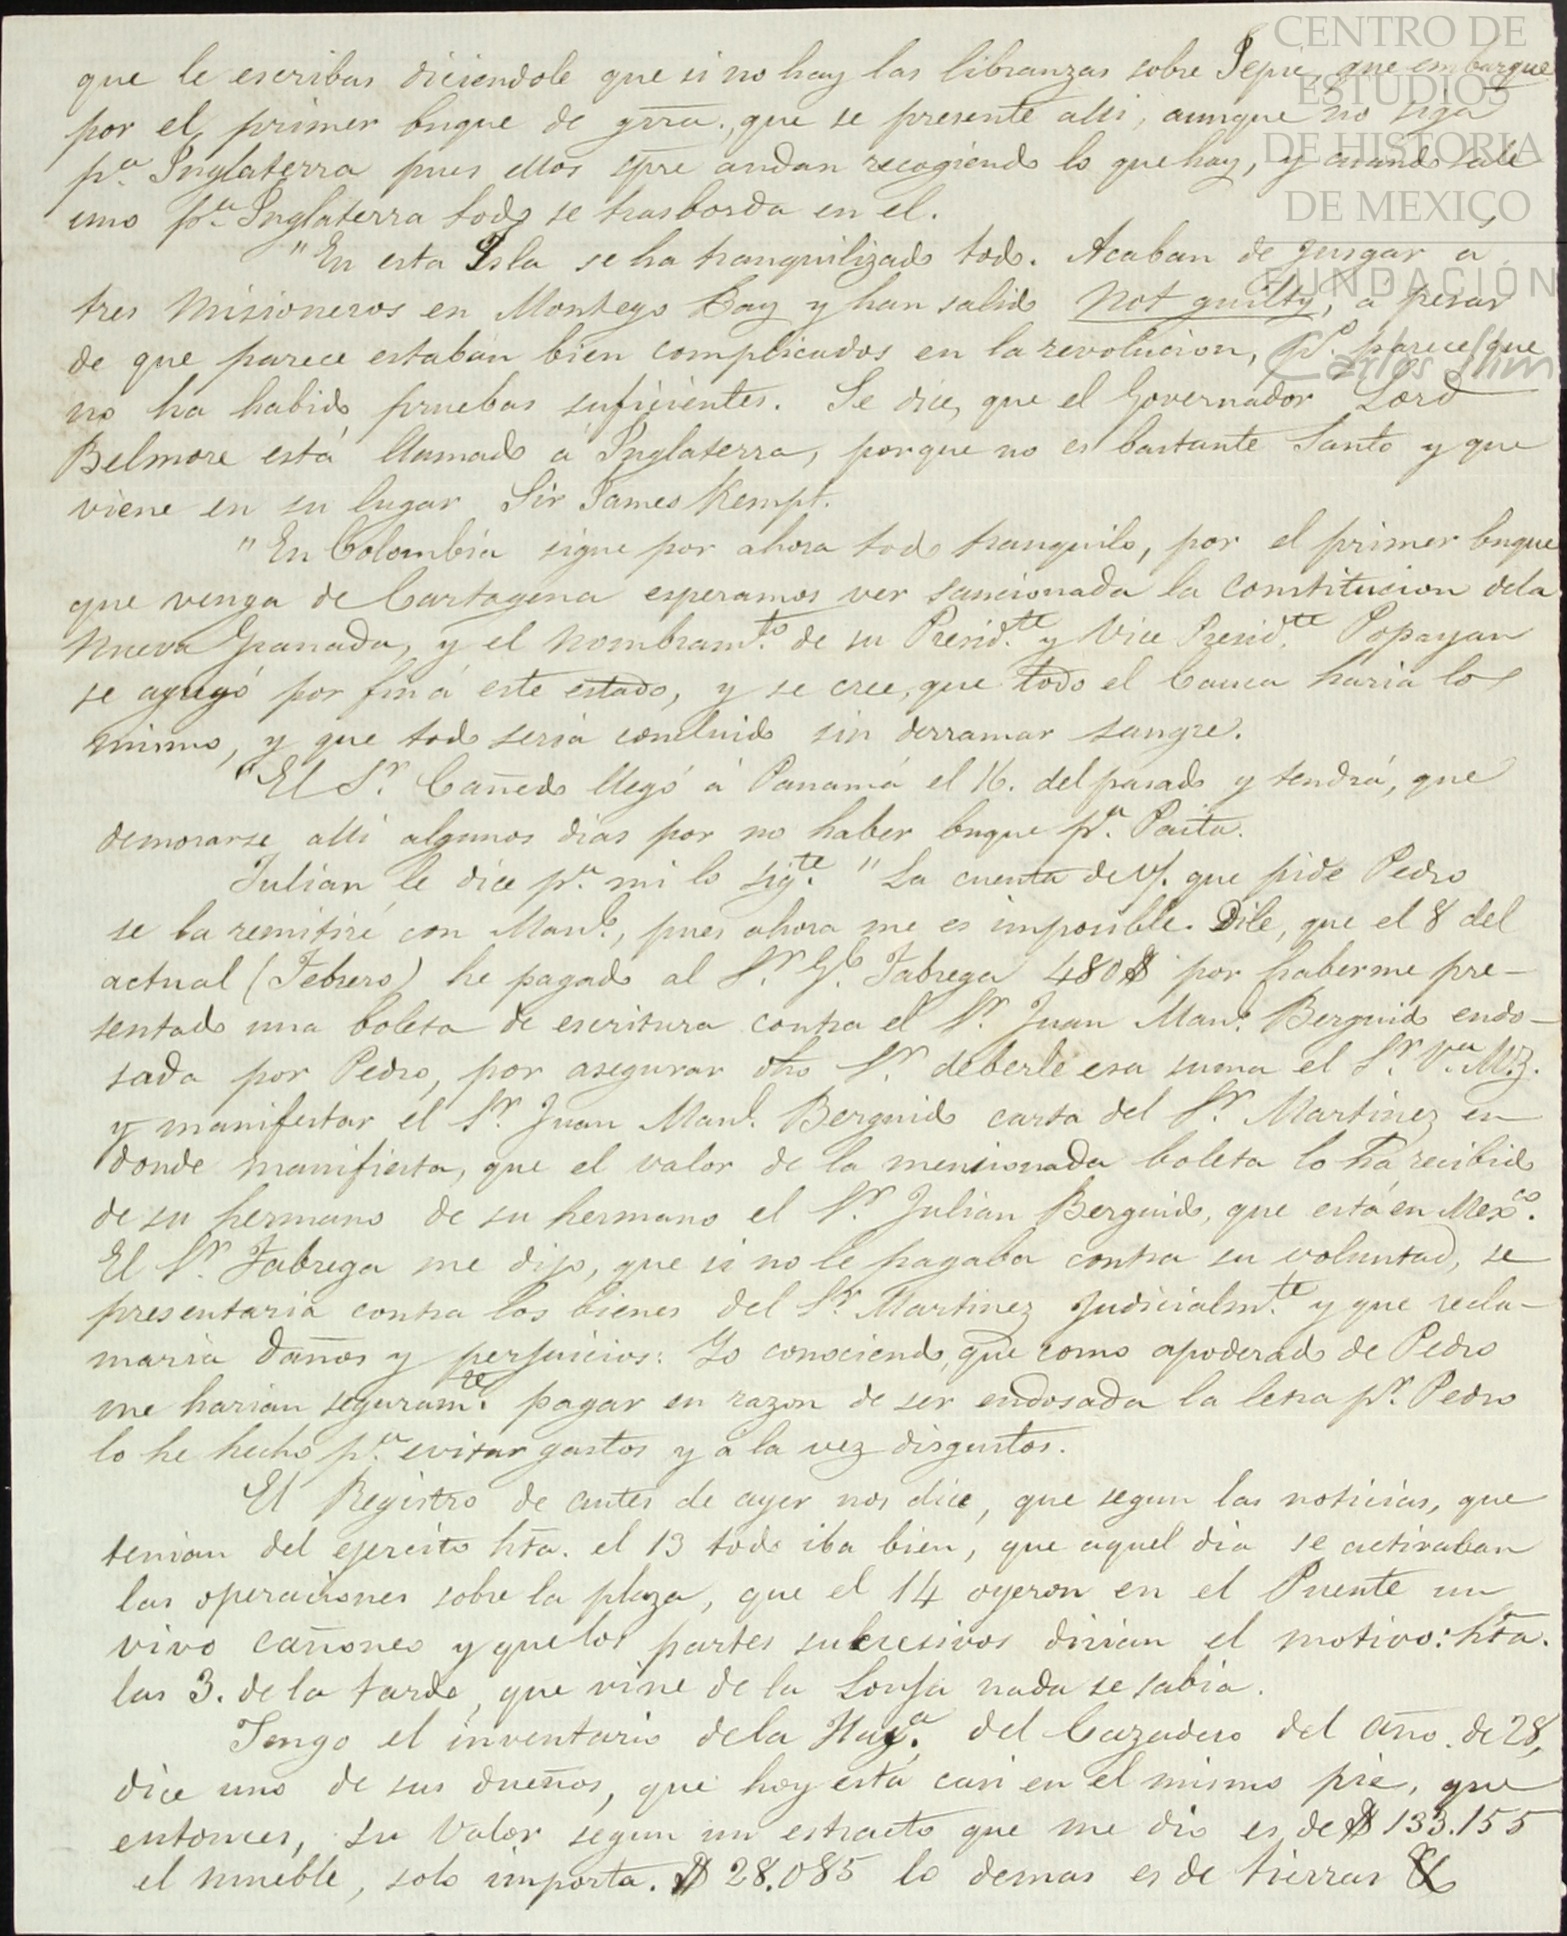 que le escribas diciendole que si no hay las libranzas sobre Tepic, que embarque
por el primer buque de grra., que se presente alli, aunque no siga
pa. Inglaterra pues ellos spre andan recogiendo lo que hay, y cuando sale
uno pa. Inglaterra todo se trasborda en el.
"En esta Isla se ha tranquilizado todo. Acaban de jusgar a
tres Misioneros en Montego Bay y han salido not guilty, á pesar
de que parece estaban bien complicados en la revolucion, po. parece que
no ha habido pruebas suficientes. Se dice, que el Governador Lord
Belmore está llamado á Inglaterra, porque no es bastante Santo y que
viene en su lugar Sir James Kempt.
"En Colombia sigue por ahora todo tranquilo, por el primer buque
que venga de Cartagena esperamos ver sancionada la constitucion dela
Nueva Granada, y el nombramto. de su Presidte. y Vice Presidte. Popayan
se agregó por fin á este estado, y se cree, que todo el Cauca haria lo
mismo, y que todo seria concluido sin derramar sangre.
"El Sr. Cañedo llegó á Panamá el 16. del pasado y tendrá, que
demorarse alli algunos dias por no haber buque pa. Paita.
Julian le dice pa. mi lo sigte. "La cuenta de V. que pide Pedro
se la remitiré con Manl., pues ahora me es imposible. Dile, que el 8 del
actual (Febrero) he pagado al Sr. Gl. Fabrega 480$ por haberme pre-
sentado una boleta de escritura contra el Sr. Juan Manl. Berguido endo-
sada por Pedro, por asegurar dho Sr. deberle esa suma el Sr. Va. Mz.
y manifestar el Sr. Juan Manl. Berguido carta del Sr. Martinez en
donde manifiesta, que el valor de la mencionada boleta lo há recibido
de su hermano de su hermano el Sr. Julian Berguido, que está en Mexco.
El Sr. Fabrega me dijo, que si no le pagaba contra su voluntad, se
presentaria contra los bienes del Sr. Martinez Judicialmte. y que recla-
maria daños y perjuicios: Yo conociendo, que como apoderado de Pedro
me harian seguramte. pagar en razon de ser endosada la letra pr. Pedro
lo he hecho pa. evitar gastos y a la vez disgustos.
El Registro de antes de ayer nos dice, que segun las noticias, que
tenian del ejercito hta. el 13 todo iba bien, que aquel dia se activaban
las operaciones sobre la plaza, que el 14 oyeron en el Puente un
vivo cañoneo y que los partes subcesivos dirian el motivo: hta.
las 3. de la tarde, que vine de la Lonja nada se sabia.
Tengo el inventario dela Haza. del Cazadero del año de 28,
dice uno de sus dueños, que hoy está casi en el mismo pie, que
entonces, su valor segun un estracto que me dio es de $ 133.155
el mueble, solo importa. $ 28.085 lo demas es de tierras &
CENTRO DE
ESTUDIOS
DE HISTORIA
DE MEXICO
FUNDACIÓN
Carlos Slim